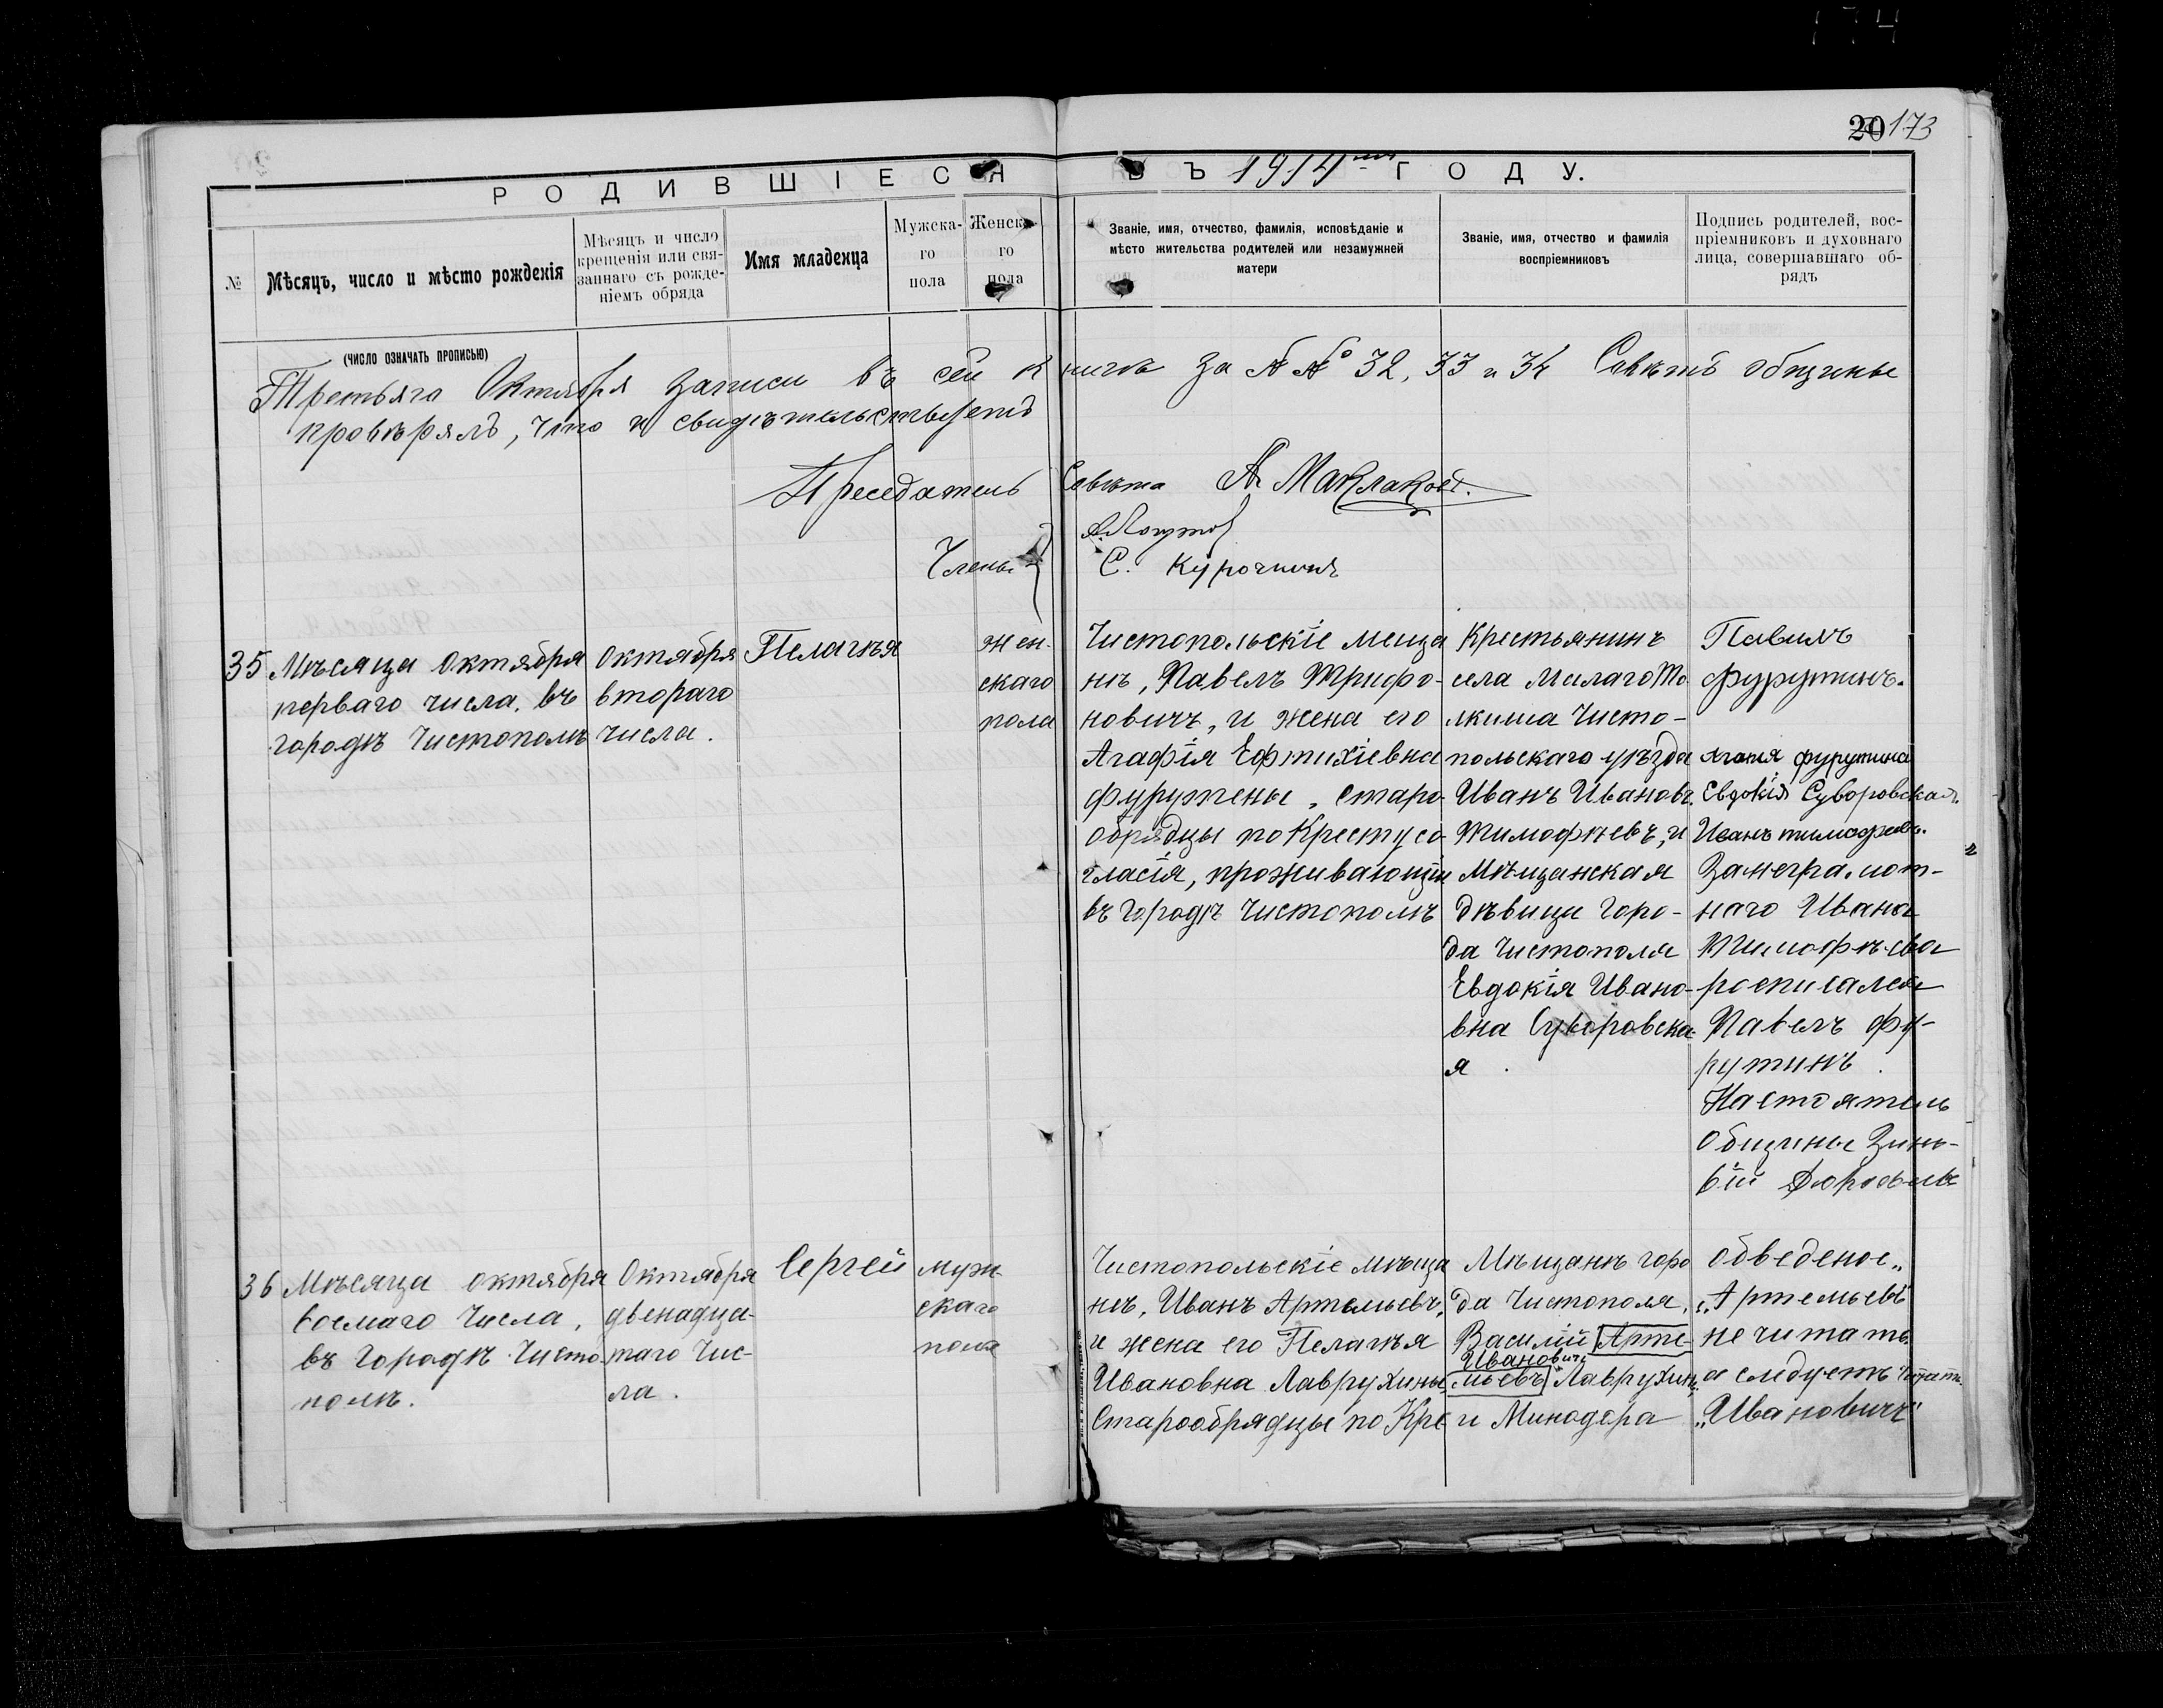 174
20 173
РОДИВШІЕСЯ ВЪ 1914мъ ГОДУ.
№
Мѣсяцъ, число и мѣсто рожденія
Мѣсяцъ и число
крещенія или свя-
заннаго съ рожде-
ніемъ обряда
Имя младенца
Мужска-
го
пола
Женска-
го
пола
Званіе, имя, отчество, фамилія, исповѣданіе и
мѣсто жительства родителей или незамужней
матери
Званіе, имя, отчество и фамилія
воспріемниковъ
Подпись родителей, вос-
пріемниковъ и духовнаго
лица, совершавшаго об-
рядъ
(ЧИСЛО ОЗНАЧАТЬ ПРОПИСЬЮ)
Третьяго Октября записи въ сей книгѣ за №№ 32, 33 и 34 Совѣтъ общины
провѣрялъ, что и свидѣтельствуетъ
Преседатель Совѣта А Маклаковъ.
Члены
С. Курочкинъ
35
Мѣсяца Октября
перваго числа. въ
городѣ Чистополѣ
Октября
втораго
числа.
Пелагѣя
жен-
скаго
пола
Чистопольскіе меща
нѣ, Павелъ Трифо-
новичъ, и жена его
Агафія Ефтихіевна
Фурутены, старо-
обрядцы по Кресту со
гласія, проживающіи
въ городѣ Чистополѣ
Крестьянинъ
села Малаго То
лкиша Чисто-
польскаго уѣзда
Иванъ Ивановъ.
Тимофѣевъ, и
Мѣщанская
дѣвица горо-
да Чистополя
Евдокія Ивано-
вна Суворовска-
я.
Павилъ
Фурутинъ.
Агапия фурутина
Евдокія Суворовская.
Иванъ тимофевъ.
Занеграмот-
наго Ивана
Тимофѣева
росписался
Павелъ Фу-
рутинъ.
Настоятель
общины Зинь-
вій
36
Мѣсяца октября
восмаго числа,
въ городѣ Чисто-
полѣ.
Октября
двенадца-
таго чис-
ла.
Сергей
муж-
скаго
пола
Чистопольскіе мѣща
нѣ, Иванъ Артемьевъ,
и жена его Пелагѣя
Ивановна Лаврухины,
Старообрядцы по Кре
Мѣщанѣ горо
да Чистополя,
Василій Арте-
Ивановичъ
мьевъ Лаврухинъ,
и Минодора
обведеное „
„Артемьевъ
не читать
а следуетъ читать.
„Ивановичъ“